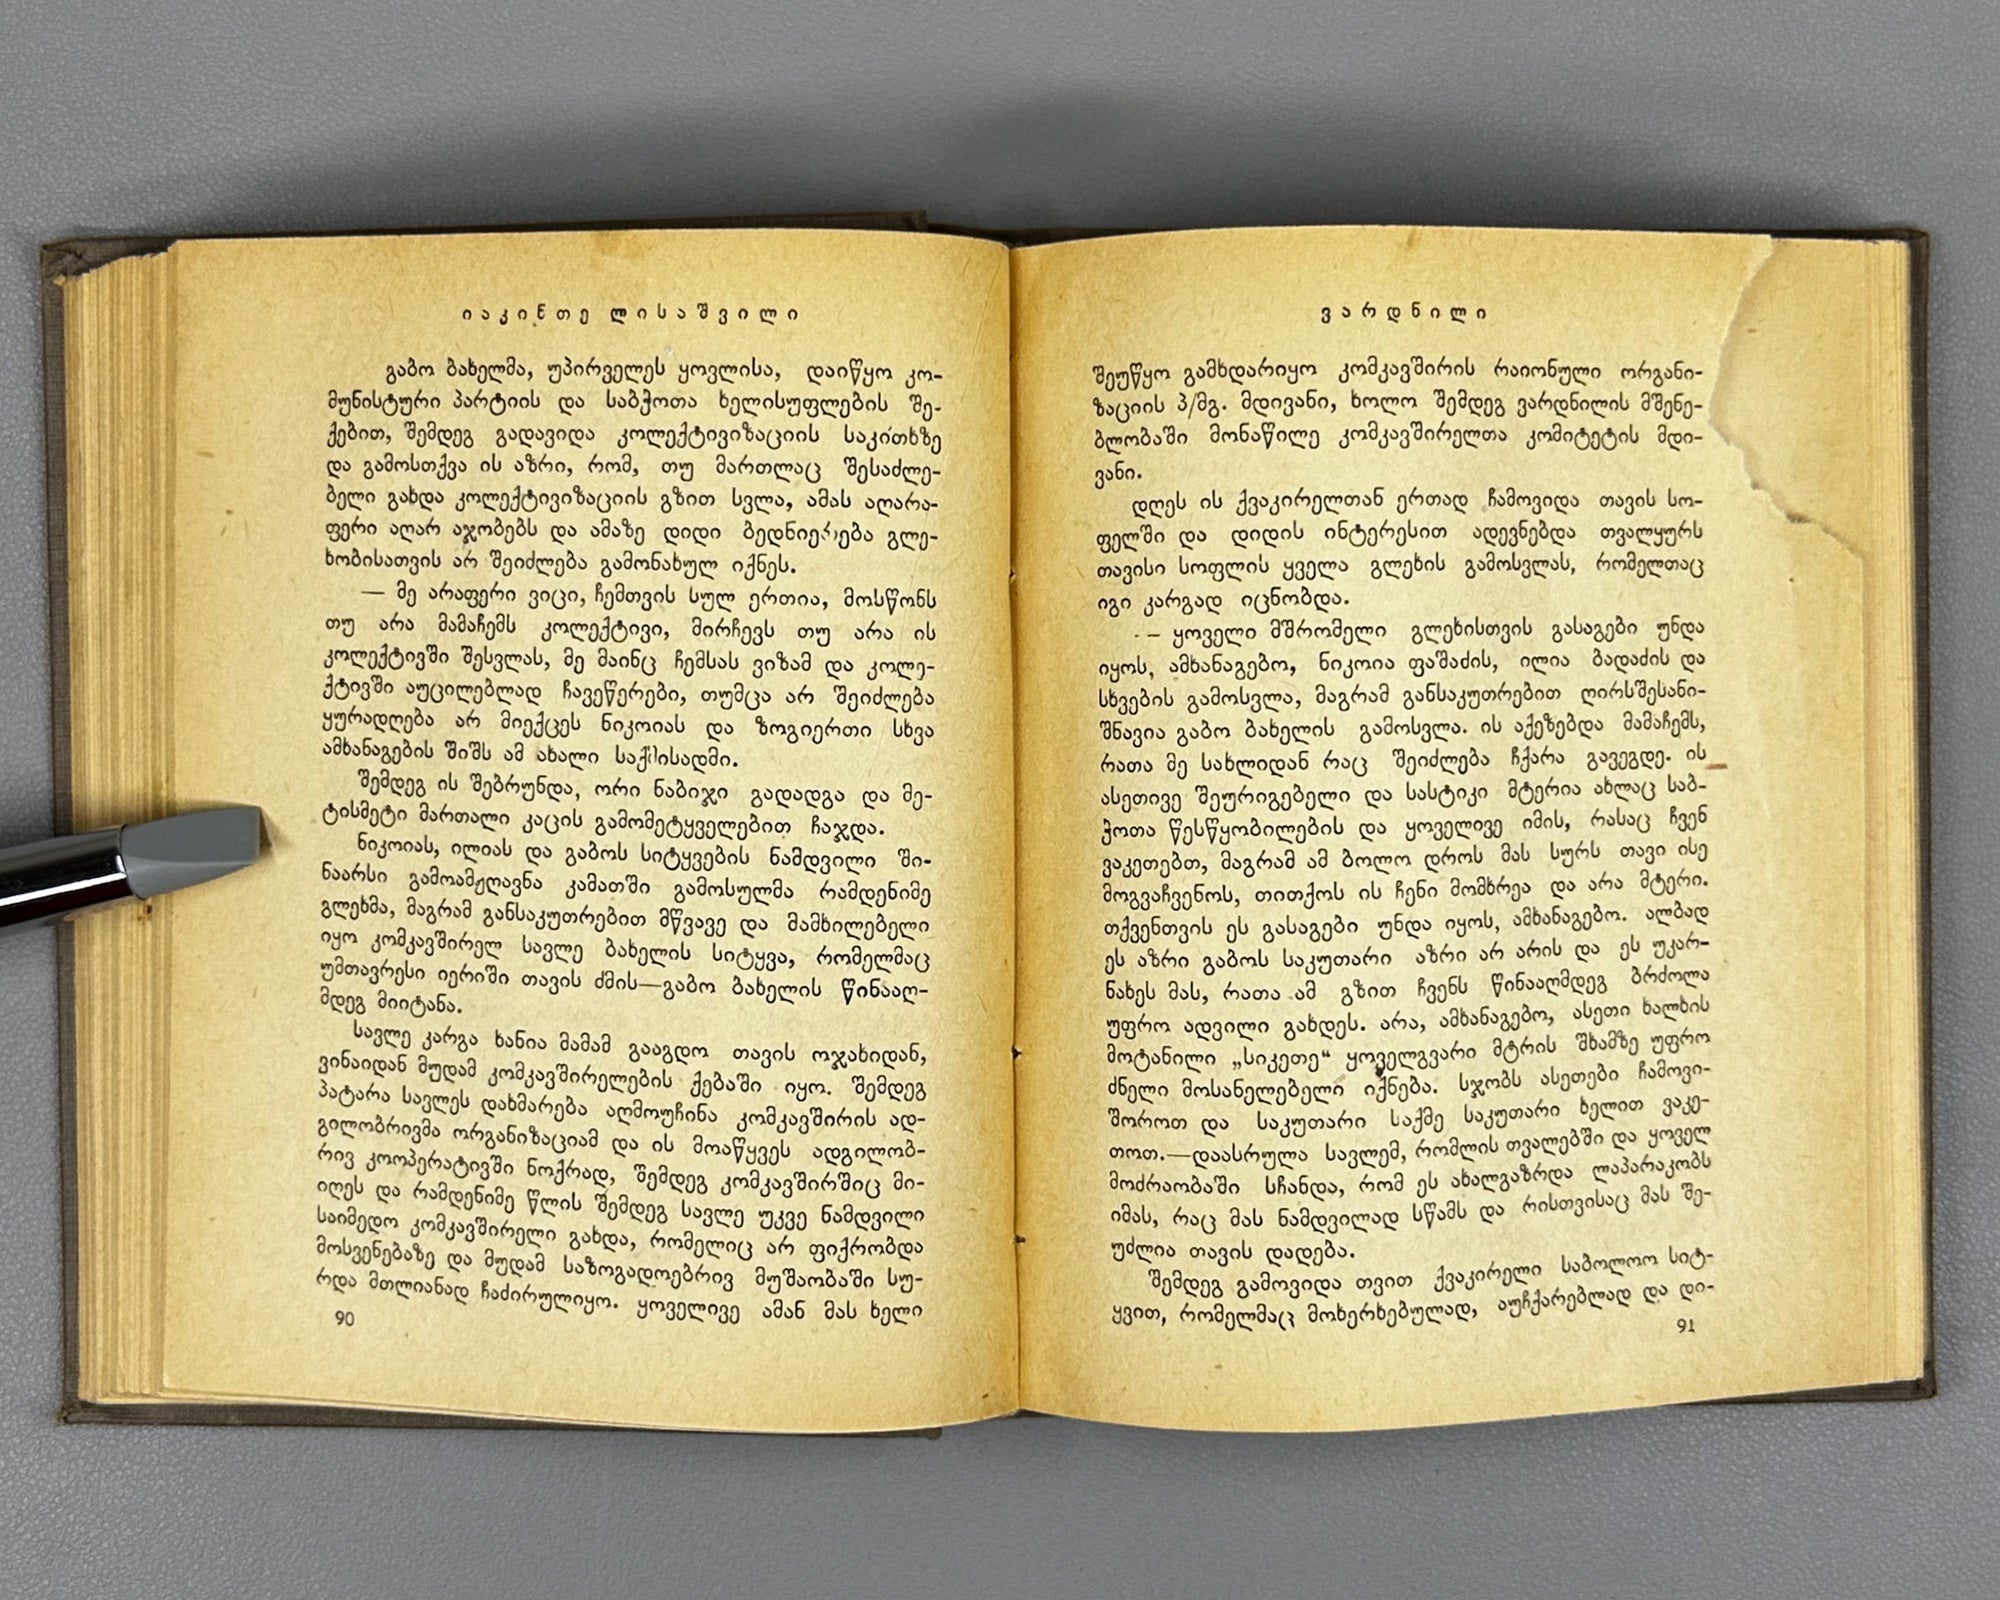 იაკინთე ლისაშვილი
გაბო ბახელმა, უპირველეს ყოვლისა, დაიწყო კო-
მუნისტური პარტიის და საბჭოთა ხელისუფლების შე-
ქებით, შემდეგ გადავიდა კოლექტივიზაციის საკითხზე
და გამოსთქვა ის აზრი, რომ, თუ მართლაც შესაძლე-
ბელი გახდა კოლექტივიზაციის გზით სვლა, ამას აღარა-
ფერი აღარ აჯობებს და ამაზე დიდი ბედნიერება გლე-
ხობისათვის არ შეიძლება გამონახულ იქნეს.
— მე არაფერი ვიცი, ჩემთვის სულ ერთია, მოსწონს
თუ არა მამაჩემს კოლექტივი, მირჩევს თუ არა ის
კოლექტივში შესვლას, მე მაინც ჩემსას ვიზამ და კოლე-
ქტივში აუცილებლად ჩავეწერები, თუმცა არ შეიძლება
ყურადღება არ მიექცეს ნიკოიას და ზოგიერთი სხვა
ამხანაგების შიშს ამ ახალი საქმისადმი.
შემდეგ ის შებრუნდა, ორი ნაბიჯი გადადგა და მე-
ტისმეტი მართალი კაცის გამომეტყველებით ჩაჯდა.
ნიკოიას, ილიას და გაბოს სიტყვების ნამდვილი ში-
ნაარსი გამოამჟღავნა კამათში გამოსულმა რამდენიმე
გლეხმა, მაგრამ განსაკუთრებით მწვავე და მამხილებელი
იყო კომკავშირელ სავლე ბახელის სიტყვა, რომელმაც
უმთავრესი იერიში თავის ძმის—გაბო ბახელის წინააღ-
მდეგ მიიტანა.
სავლე კარგა ხანია მამამ გააგდო თავის ოჯახიდან,
ვინაიდან მუდამ კომკავშირელების ქებაში იყო. შემდეგ
პატარა სავლეს დახმარება აღმოუჩინა კომკავშირის ად-
გილობრივმა ორგანიზაციამ და ის მოაწყვეს ადგილობ-
რივ კოოპერატივში ნოქრად, შემდეგ კომკავშირშიც მი-
იღეს და რამდენიმე წლის შემდეგ სავლე უკვე ნამდვილი
საიმედო კომკავშირელი გახდა, რომელიც არ ფიქრობდა
მოსვენებაზე და მუდამ საზოგადოებრივ მუშაობაში სუ-
რდა მთლიანად ჩაძირულიყო. ყოველივე ამან მას ხელი
90
ვარდნილი
შეუწყო გამხდარიყო კომკავშირის რაიონული ორგანი-
ზაციის პ/მგ. მდივანი, ხოლო შემდეგ ვარდნილის მშენე-
ბლობაში მონაწილე კომკავშირელთა კომიტეტის მდი-
ვანი.
დღეს ის ქვაკირელთან ერთად ჩამოვიდა თავის სო-
ფელში და დიდის ინტერესით ადევნებდა თვალყურს
თავისი სოფლის ყველა გლეხის გამოსვლას, რომელთაც
იგი კარგად იცნობდა.
— ყოველი მშრომელი გლეხისთვის გასაგები უნდა
იყოს, ამხანაგებო, ნიკოია ფაშაძის, ილია ბადაძის და
სხვების გამოსვლა, მაგრამ განსაკუთრებით ღირსშესანი-
შნავია გაბო ბახელის გამოსვლა. ის აქეზებდა მამაჩემს,
რათა მე სახლიდან რაც შეიძლება ჩქარა გავეგდე. ის
ასეთივე შეურიგებელი და სასტიკი მტერია ახლაც საბ-
ჭოთა წესწყობილების და ყოველივე იმის, რასაც ჩვენ
ვაკეთებთ, მაგრამ ამ ბოლო დროს მას სურს თავი ისე
მოგვაჩვენოს, თითქოს ის ჩენი მომხრეა და არა მტერი.
თქვენთვის ეს გასაგები უნდა იყოს, ამხანაგებო. ალბად
ეს აზრი გაბოს საკუთარი აზრი არ არის და ეს უკარ-
ნახეს მას, რათა ამ გზით ჩვენს წინააღმდეგ ბრძოლა
უფრო ადვილი გახდეს. არა, ამხანაგებო, ასეთი ხალხის
მოტანილი „სიკეთე“ ყოველგვარი მტრის შხამზე უფრო
ძნელი მოსანელებელი იქნება. სჯობს ასეთები ჩამოვი-
შოროთ და საკუთარი საქმე საკუთარი ხელით ვაკე-
თოთ.—დაასრულა სავლემ, რომლის თვალებში და ყოველ
მოძრაობაში სჩანდა, რომ ეს ახალგაზრდა ლაპარაკობს
იმას, რაც მას ნამდვილად სწამს და რისთვისაც მას შე-
უძლია თავის დადება.
შემდეგ გამოვიდა თვით ქვაკირელი საბოლოო სიტ-
ყვით, რომელმაც მოხერხებულად, აუჩქარებლად და დი-
91